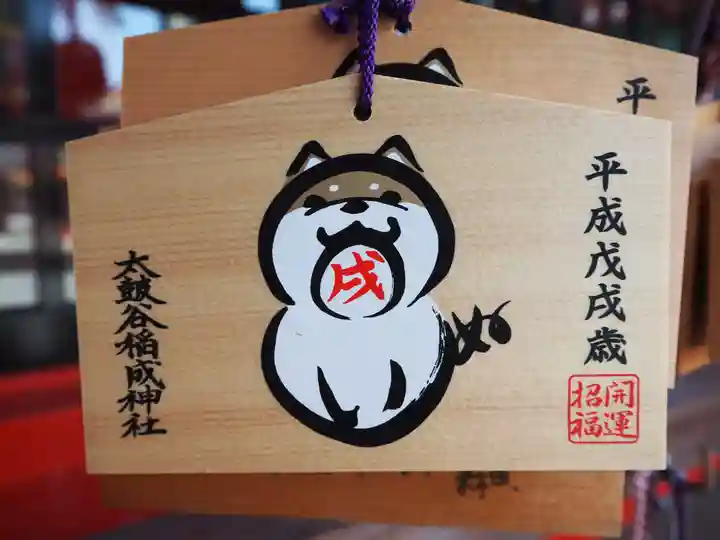 平
平成戊戌歳
戌
開運
招福
太皷谷稲成神社